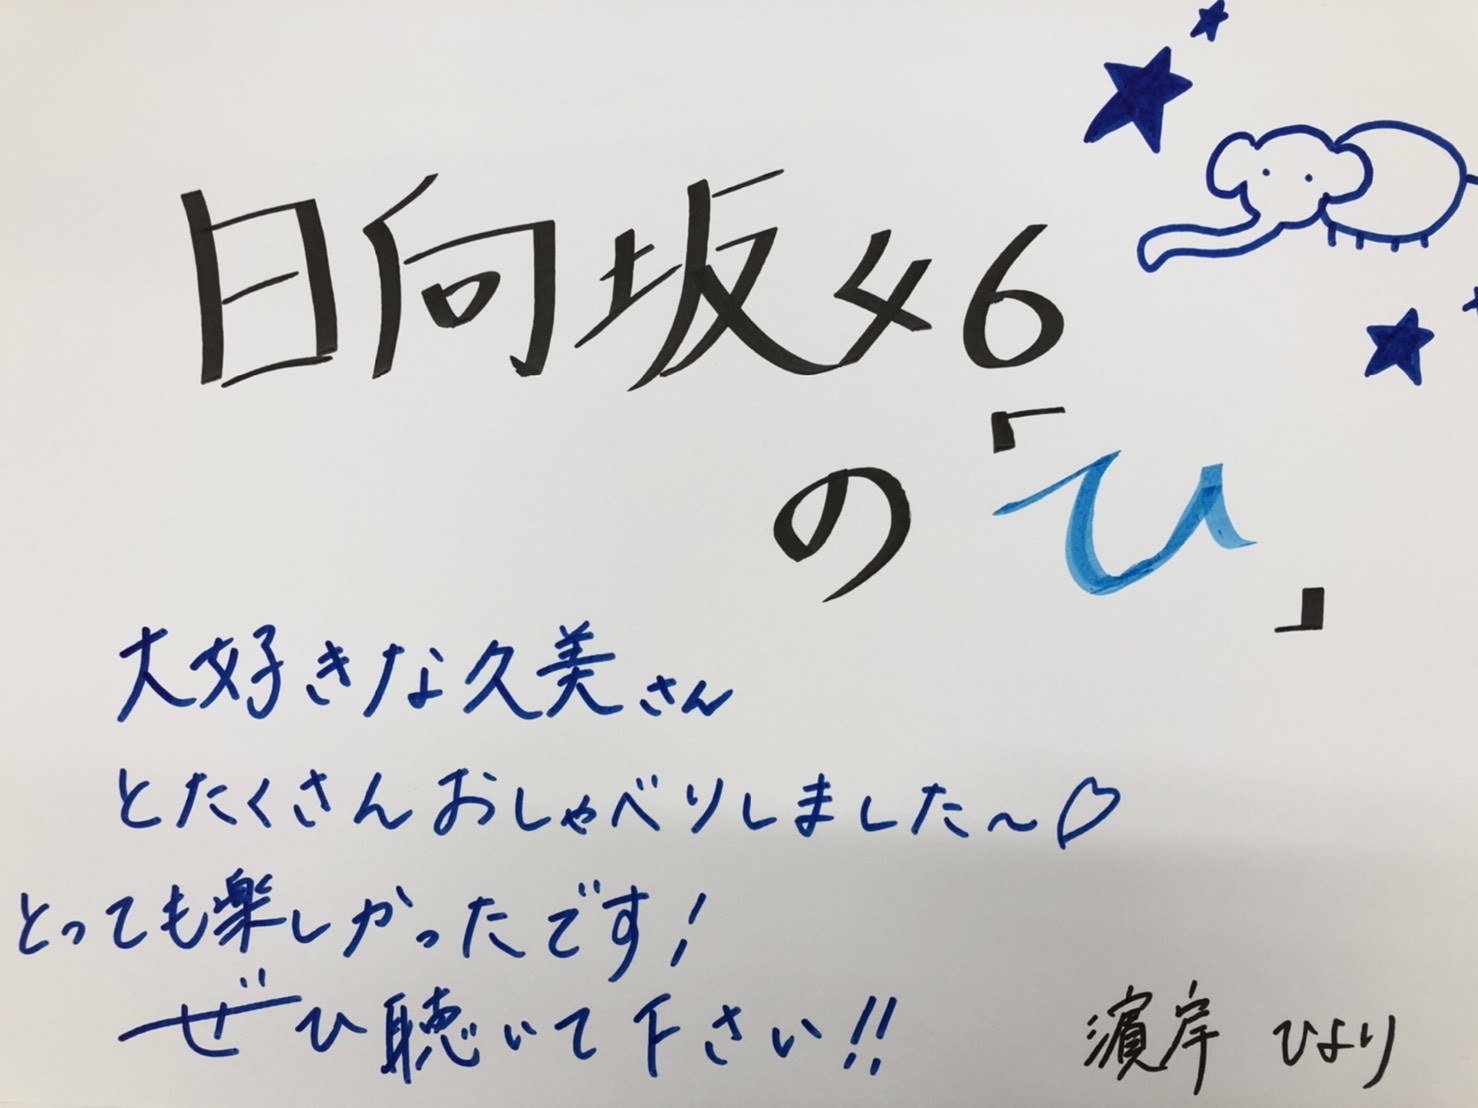 日向坂46
の「ひ」
大好きな久美さん
とたくさんおしゃべりしました〜♡
とっても楽しかったです!
ぜひ聴いて下さい!!
濱岸 ひより